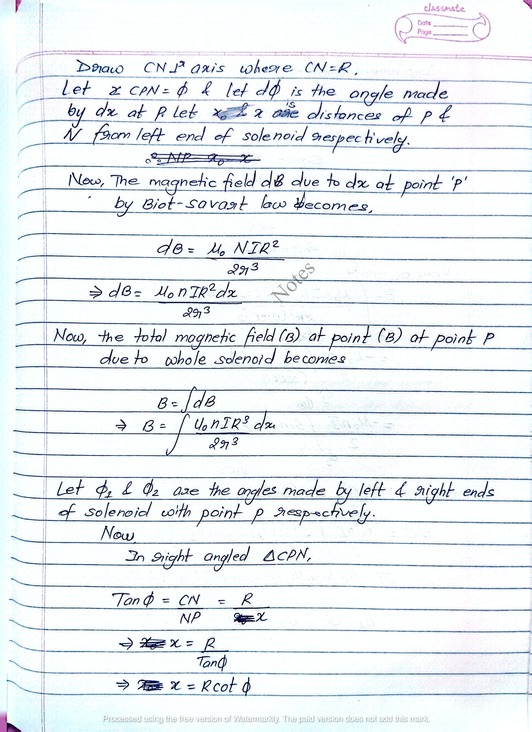 classmate
Date
Page
Draw CN⊥r axis where CN=R.
Let ∠ CPN = φ & let dφ is the angle made
by dx at P. Let x is distances of P &
N from left end of solenoid respectively.
Now, The magnetic field dB due to dx at point 'P'
by Biot-savart law becomes,
dB = μ₀ NIR²
2r³
⇒ dB = μ₀ nIR² dx
2r³
Notes
Now, the total magnetic field (B) at point (B) at point P
due to whole solenoid becomes
B = ∫dB
⇒ B = ∫ μ₀ nIR³ dx
2r³
Let φ₁ & φ₂ are the angles made by left & right ends
of solenoid with point p respectively.
Now
In right angled ΔCPN,
Tan φ = CN = R
NP x
⇒ x = R
Tanφ
⇒ x = R cot φ
Processed using the free version of Watermarkly. The paid version does not add this mark.